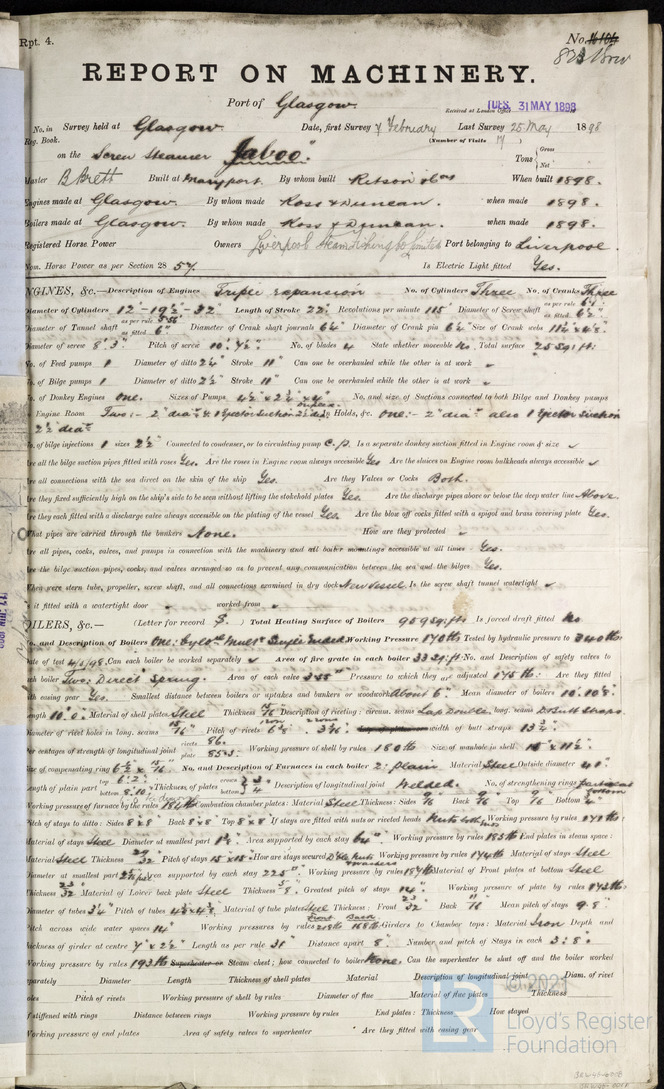 Rpt. 4.
No.
REPORT ON MACHINERY.
Port of Glasgow
Received at London Office TUES. 31 MAY 1898
No. in Survey held at Glasgow Date, first Survey 7 February Last Survey 25 May 1898
Reg. Book. (Number of Visits
on the Screw Steamer Tons Gross Net
Master B Brett Built at Maryport By whom built Ritson & Cos When built 1898.
Engines made at Glasgow. By whom made Ross & Duncan. when made 1898.
Boilers made at Glasgow. By whom made Ross & Duncan. when made 1898.
Registered Horse Power Owners Liverpool Steam Fishing Co Limited Port belonging to Liverpool.
Nom. Horse Power as per Section 28 57. Is Electric Light fitted Yes.
ENGINES, &c.—Description of Engines Triple expansion No. of Cylinders Three No. of Cranks Three
Diameter of Cylinders 12"-19½-32" Length of Stroke 22" Revolutions per minute 115 Diameter of Screw shaft as per rule as fitted 6½"
Diameter of Tunnel shaft as per rule as fitted 6" Diameter of Crank shaft journals 6¼" Diameter of Crank pin 6¼" Size of Crank webs
Diameter of screw 8'.3" Pitch of screw No. of blades 4 State whether moveable No. Total surface 25 sq: ft:
No. of Feed pumps 1 Diameter of ditto 2¼" Stroke 11" Can one be overhauled while the other is at work
No. of Bilge pumps 1 Diameter of ditto 2½" Stroke 11" Can one be overhauled while the other is at work
No. of Donkey Engines One. Sizes of Pumps 4½" x 2¾" x 4" No. and size of Suctions connected to both Bilge and Donkey pumps
In Engine Room Two:- 2" dia & 1 Ejector Suction 2½ dia In Holds, &c. One:- 2" dia also 1 Ejector Suction
2½ dia
No. of bilge injections 1 sizes 2½" Connected to condenser, or to circulating pump C.p. Is a separate donkey suction fitted in Engine room & size
Are all the bilge suction pipes fitted with roses Yes. Are the roses in Engine room always accessible Yes Are the sluices on Engine room bulkheads always accessible
Are all connections with the sea direct on the skin of the ship Yes. Are they Valves or Cocks Both.
Are they fixed sufficiently high on the ship's side to be seen without lifting the stokehold plates Yes. Are the discharge pipes above or below the deep water line Above.
Are they each fitted with a discharge valve always accessible on the plating of the vessel Yes. Are the blow off cocks fitted with a spigot and brass covering plate Yes.
What pipes are carried through the bunkers None. How are they protected
Are all pipes, cocks, valves, and pumps in connection with the machinery and all boiler mountings accessible at all times Yes.
Are the bilge suction pipes, cocks, and valves arranged so as to prevent any communication between the sea and the bilges Yes.
When were stern tube, propeller, screw shaft, and all connections examined in dry dock New Vessel Is the screw shaft tunnel watertight
Is it fitted with a watertight door worked from
BOILERS, &c.— (Letter for record S.) Total Heating Surface of Boilers 959 sq: ft: Is forced draft fitted No
No. and Description of Boilers One: Cyl'd' Mult' Single Ended Working Pressure 170 lb Tested by hydraulic pressure to 340 lb
Date of test 4/5/98 Can each boiler be worked separately Area of fire grate in each boiler 33 sq: ft: No. and Description of safety valves to
each boiler Two: Direct Spring. Area of each valve 3.55" Pressure to which they are adjusted 175 lb: Are they fitted
with easing gear Yes. Smallest distance between boilers or uptakes and bunkers or woodwork About 6" Mean diameter of boilers 10'.10⅝"
Length 10'.0" Material of shell plates Steel Thickness Description of riveting: circum. seams Lap Double long. seams D Butt Straps.
Diameter of rivet holes in long. seams Pitch of rivets 6⅞" width of butt straps 13¾"
Percentages of strength of longitudinal joint rivets 86. plate 85.5: Working pressure of shell by rules 180 lb Size of manhole in shell 15" x 11½"
Size of compensating ring No. and Description of Furnaces in each boiler 2: plain Material Steel Outside diameter 40"
Length of plain part top 6'.2" bottom 8'.10" Thickness of plates crown bottom ¾ Description of longitudinal joint Welded. No. of strengthening rings
Working pressure of furnace by the rules 184 lb Combustion chamber plates: Material Steel Thickness: Sides 9/16 Back 9/16 Top 9/16 Bottom
Pitch of stays to ditto: Sides 8"x8" Back 8"x8" Top 8"x8" If stays are fitted with nuts or riveted heads Nuts both ends Working pressure by rules
Material of stays Steel Diameter at smallest part Area supported by each stay 64" Working pressure by rules 185 lb End plates in steam space:
Material Steel Thickness Pitch of stays 15"x15" How are stays secured D'ble Nuts & Washers Working pressure by rules 174 lb Material of stays Steel
Diameter at smallest part Area supported by each stay 225" Working pressure by rules Material of Front plates at bottom Steel
Thickness 23/32 Material of Lower back plate Steel Thickness Greatest pitch of stays 14" Working pressure of plate by rules
Diameter of tubes 3¼" Pitch of tubes Material of tube plates Steel Thickness: Front 23/32 Back Mean pitch of stays
Pitch across wide water spaces 14" Working pressures by rules Front Back 168 lb Girders to Chamber tops: Material Iron Depth and
thickness of girder at centre 7" x 2½" Length as per rule 31" Distance apart 8" Number and pitch of Stays in each 3: 8"
Working pressure by rules 193 lb Superheater or Steam chest; how connected to boiler None. Can the superheater be shut off and the boiler worked
separately Diameter Length Thickness of shell plates Material Description of longitudinal joint Diam. of rivet
holes Pitch of rivets Working pressure of shell by rules Diameter of flue Material of flue plates Thickness
If stiffened with rings Distance between rings Working pressure by rules End plates: Thickness How stayed
Working pressure of end plates Area of safety valves to superheater Are they fitted with easing gear
© 2021
LR
Lloyd's Register
Foundation